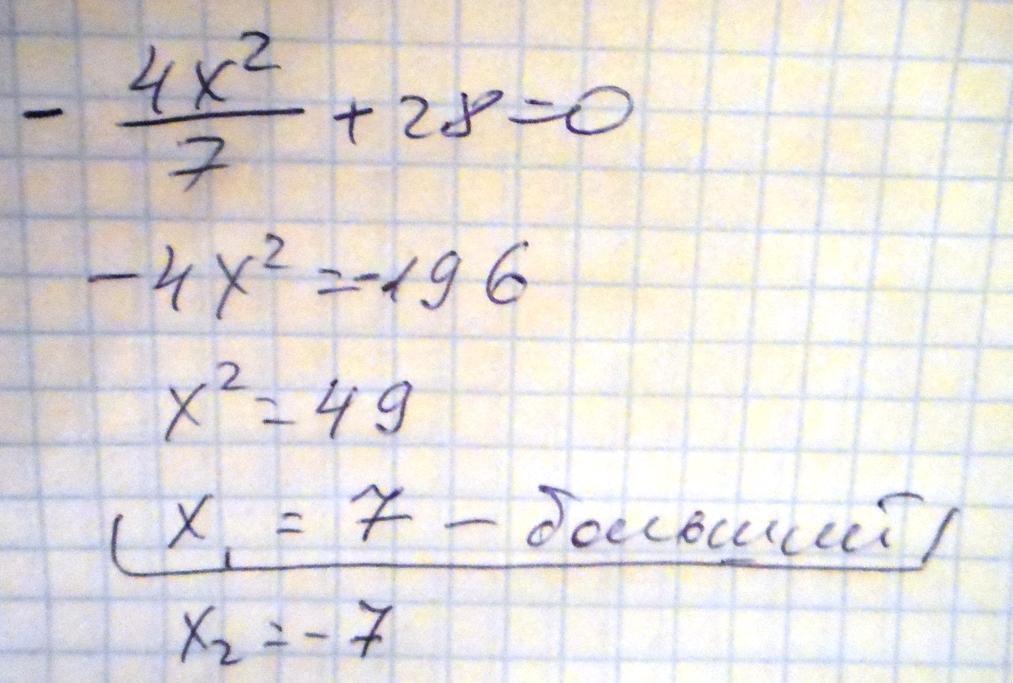 - 4x²/7 + 28 = 0
-4x² = -196
x² = 49
x₁ = 7 - больший
x₂ = -7